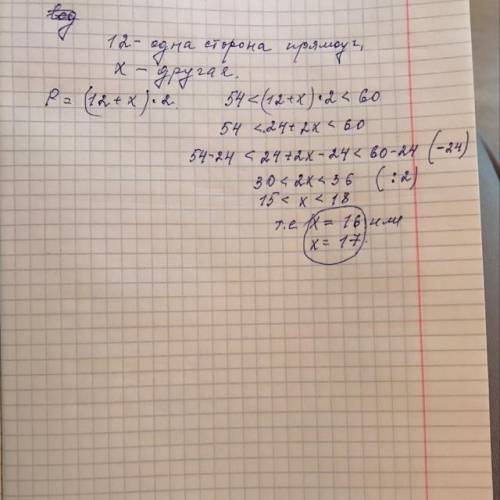 12 - одна сторона прямоуг,
x - другая.
P = (12 + x) · 2
54 < (12 + x) · 2 < 60
54 < 24 + 2x < 60
54-24 < 24 + 2x - 24 < 60 - 24 (-24)
30 < 2x < 36 (: 2)
15 < x < 18
т.е. x = 16 или
x = 17.